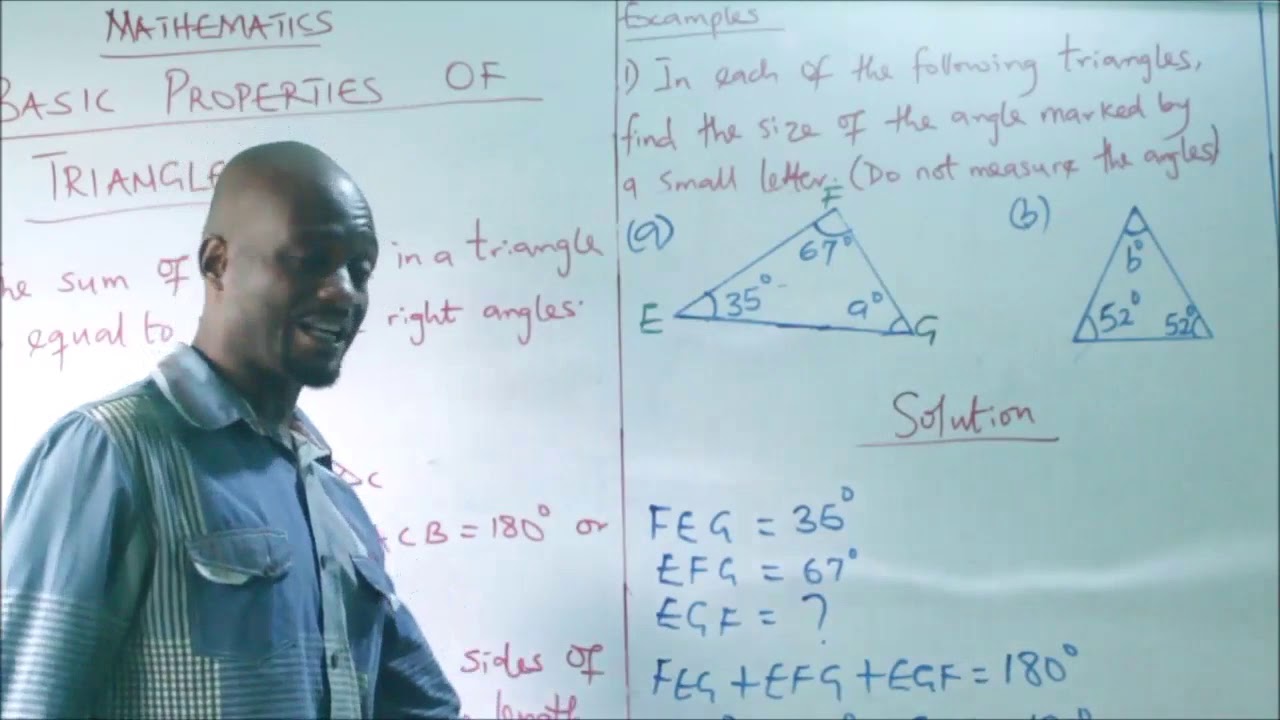 MATHEMATICS
BASIC PROPERTIES OF
TRIANGLE
he sum of in a triangle
equal to right angles.
C
CB = 180° or
sides of
length
Examples
1) In each of the following triangles,
find the size of the angle marked by
a small letter. (Do not measure the angles)
(a)
F
67°
E
35°
a°
G
(b)
b°
52°
52°
Solution
FEG = 35°
EFG = 67°
EGF = ?
FEG + EFG + EGF = 180°